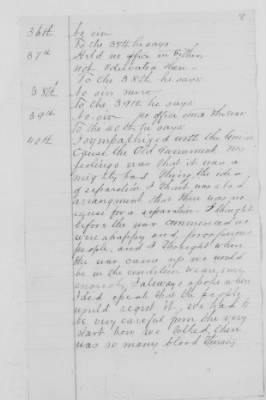 8
36th no sir
To the 37th he says
37th Held no office in Either
not Educated then
To the 38th he says
38th no sir never
To the 39th he says
39th no sir no office ever
To the 40th he says
40th I sympathized with the Union
Cause the Old Government my
feelings was that it was a
mighty bad thing, the idea
of separation I think was a bad
arrangment that there was no
cause for a separation. I thought
before the war commenced we
were a happy and prosperous
people, and I thought when
the war came up we would
be in the condition we are, very
I always spoke when
I did speak that the people
would regret it, we had to
be very careful from the very
start how we talked, there
was so many blood thirsty